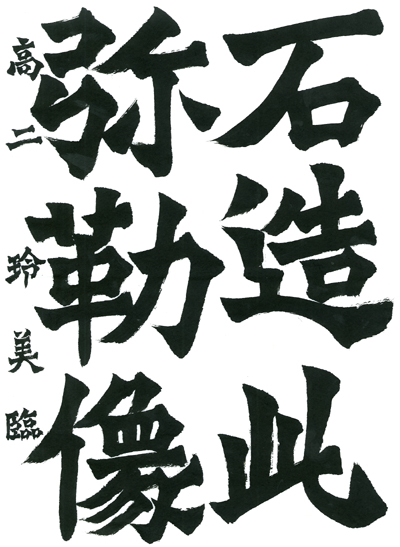 石造此
弥勒像
高二 玲美臨